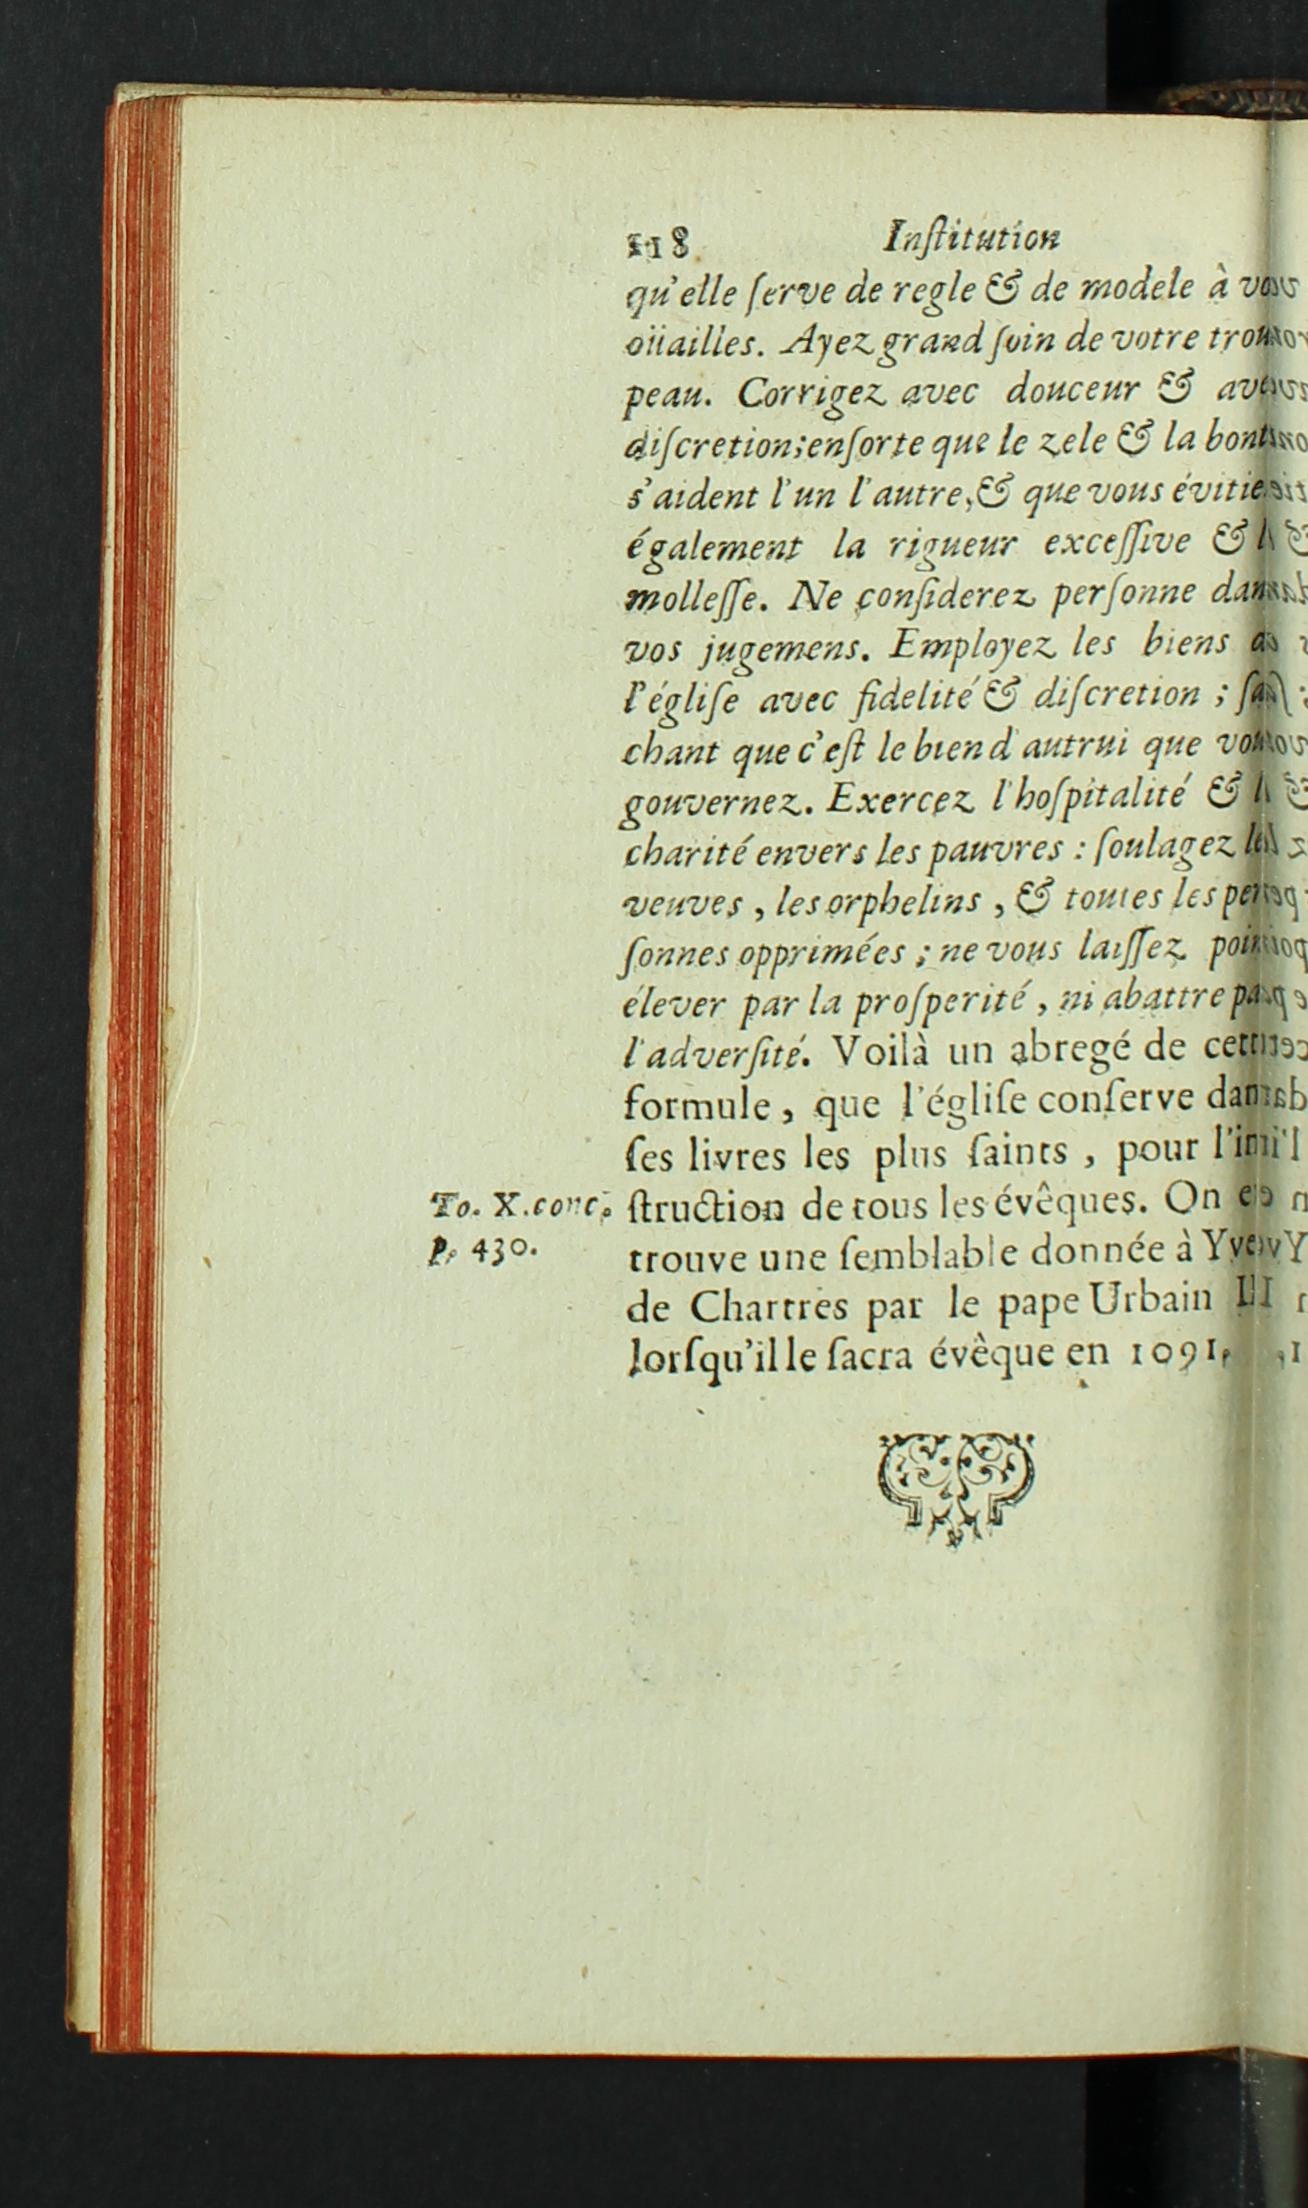 118 Inſtitution
qu'elle ſerve de regle & de modele à vos
oüailles. Ayez grand ſoin de votre trou-
peau. Corrigez avec douceur & avec
diſcretion; enſorte que le zele & la bonté
s'aident l'un l'autre, & que vous évitiez
également la rigueur exceſſive & la
molleſſe. Ne conſiderez perſonne dans
vos jugemens. Employez les biens de
l'égliſe avec fidelité & diſcretion ; ſa-
chant que c'eſt le bien d'autrui que vous
gouvernez. Exercez l'hoſpitalité & la
charité envers les pauvres : ſoulagez les
veuves , les orphelins , & toutes les per-
ſonnes opprimées ; ne vous laiſſez point
élever par la proſperité , ni abattre par
l'adverſité. Voilà un abregé de cette
formule, que l'égliſe conſerve dans
ſes livres les plus ſaints , pour l'in-
ſtruction de tous les évêques. On en
trouve une ſemblable donnée à Yves
de Chartres par le pape Urbain II
lorſqu'il le ſacra évêque en 1091.
To. X. conc.
p. 430.